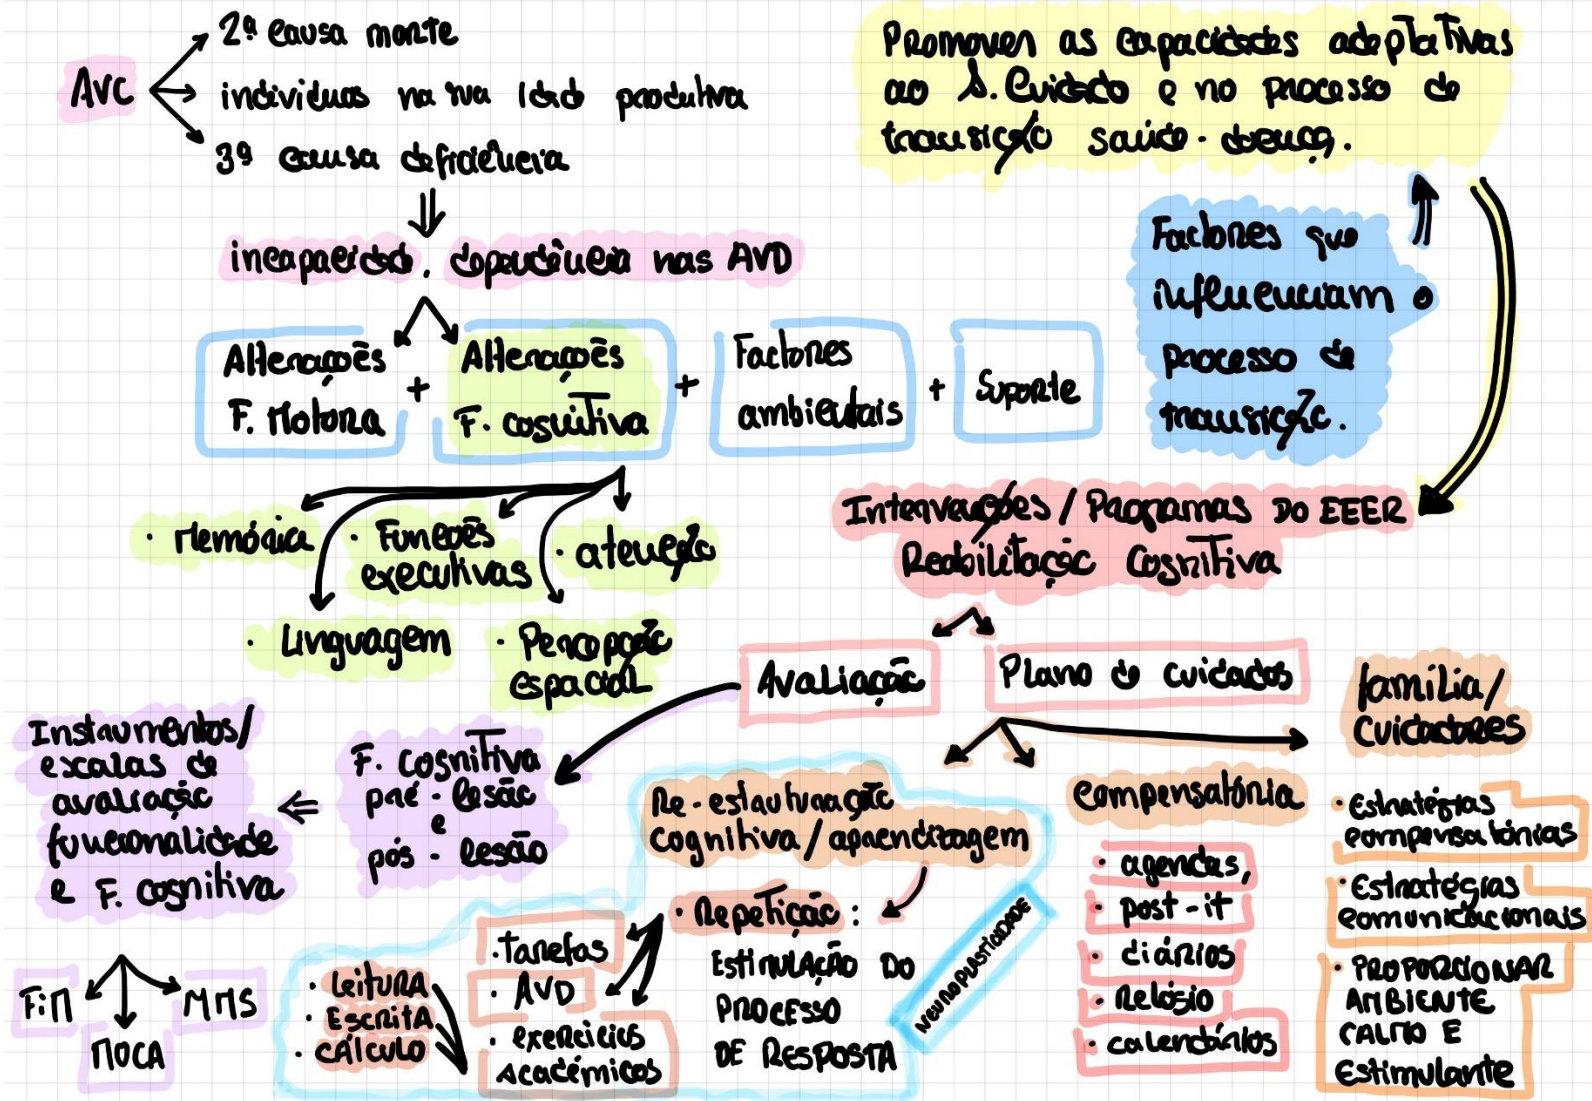 AVC
2ª causa morte
indivíduos na sua idade produtiva
3ª causa deficiência
incapacidade. dependência nas AVD
Alterações
F. Motora
+
Alterações
F. cognitiva
+
Factores
ambientais
+
Suporte
· Memória
· Funções
executivas
· atenção
· Linguagem
· Percepção
espacial
Promover as capacidades adaptativas
ao A. Cuidado e no processo de
transição saúde-doença.
Factores que
influenciam o
processo de
transição.
Intervenções / Programas DO EEER
Reabilitação Cognitiva
Avaliação
Plano de cuidados
família/
Cuidadores
F. Cognitiva
pré-lesão
e
pós-lesão
Instrumentos/
escalas de
avaliação
funcionalidade
e F. cognitiva
FiM
MOCA
MMS
Re-estruturação
cognitiva/aprendizagem
· Repetição:
ESTIMULAÇÃO DO
PROCESSO
DE RESPOSTA
NEUROPLASTICIDADE
· tarefas
· AVD
· exercícios
Académicos
· Leitura
· Escrita
· Cálculo
compensatória
· agendas,
· post-it
· diários
· Relógio
· calendários
· Estratégias
compensatórias
· Estratégias
comunicacionais
· PROPORCIONAR
AMBIENTE
CALMO E
Estimulante